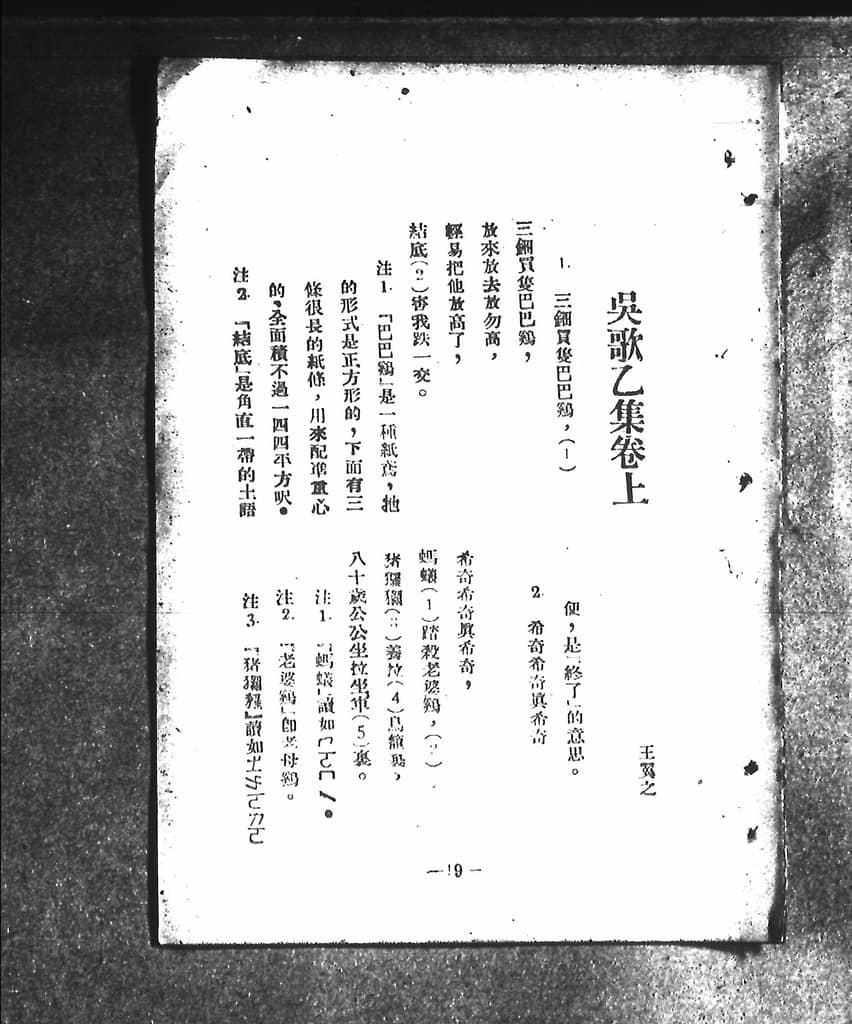 吳歌乙集卷上
王翼之
1. 三個買隻巴巴鷄，(1)
三個買隻巴巴鷄，
放來放去放勿高，
輕易把他放高了，
結底(2)害我跌一交。
注1. 「巴巴鷄」是一種紙鳶，牠
的形式是正方形的，下面有三
條很長的紙條，用來配準重心
的，全面積不過一四四平方呎。
注2. 「結底」是角直一帶的土語
便，是「終了」的意思。
2. 希奇希奇眞希奇
希奇希奇眞希奇，
螞蟻(1)踏殺老婆鷄，(2)
猪玀玀(3)養拉(4)鳥籠裏，
八十歲公公坐拉坐車(5)裏。
注1. 「螞蟻」讀如
注2. 「老婆鷄」卽老母鷄。
注3. 「猪玀玀」讀如
—19—